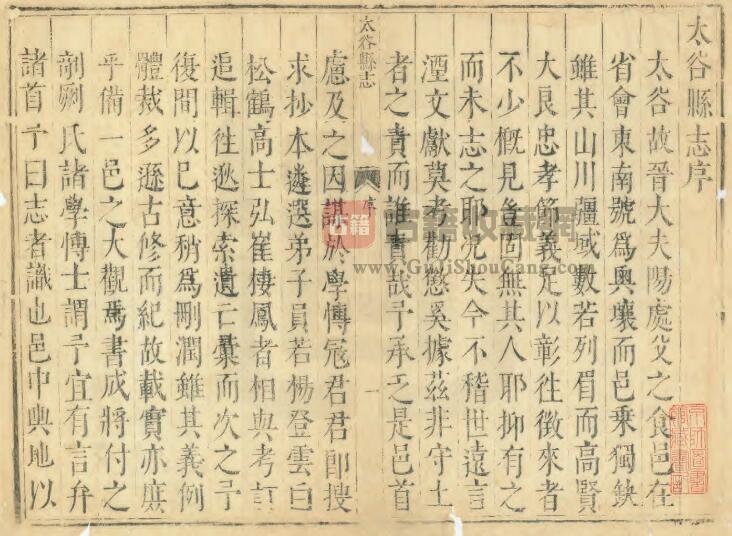 太谷縣志序
太谷故晉大夫陽處父之食邑在
省會東南號爲輿壤而邑乗獨缺
雖其山川疆域數若列眉而高賢
大良忠孝節義足以彰徃徵來者
不少概見豈固無其人耶抑有之
而未志之耶况失今不稽世遠言
湮文獻莫考勸懲奚據茲非守土
者之責而誰責哉予承乏是邑首
太谷縣志
序
一
慮及之因謀於學愽冦君君即搜
求抄本遴選弟子員若楊登雲白
松鶴高士弘崔棲鳳者相與考訂
追輯徃逖探索遺亡彙而次之予
復間以已意稍爲刪潤雖其義例
體裁多遜古修而紀故載實亦庶
乎備一邑之大觀焉書成將付之
剞劂氏諸學愽士謂予宜有言弁
諸首予曰志者識也邑中輿地以
古籍
古籍收藏網
www.GuJiShouCang.com